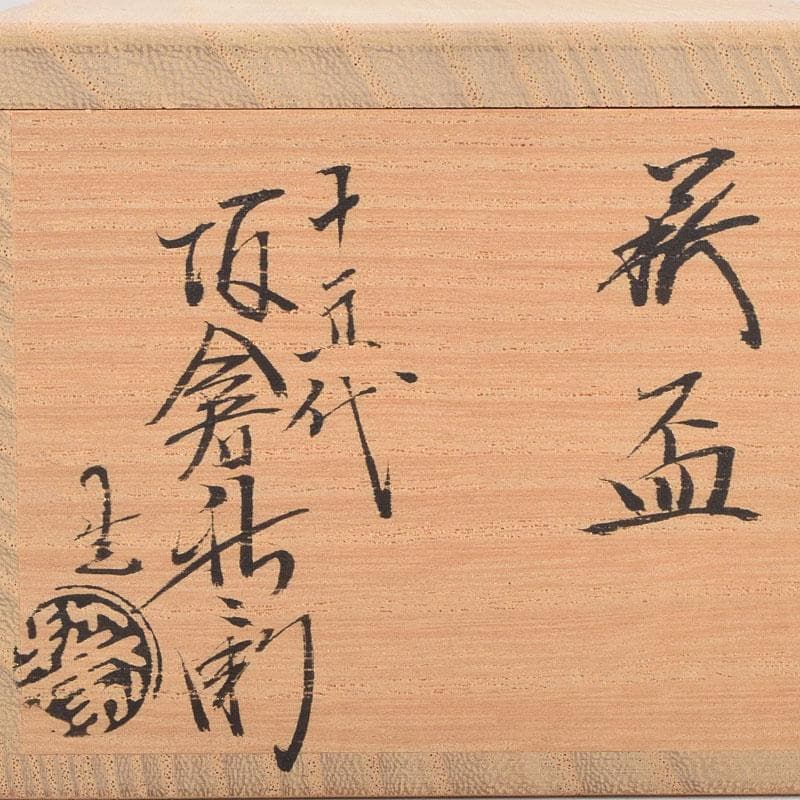 萩盃
十五代
坂倉新兵衛
造